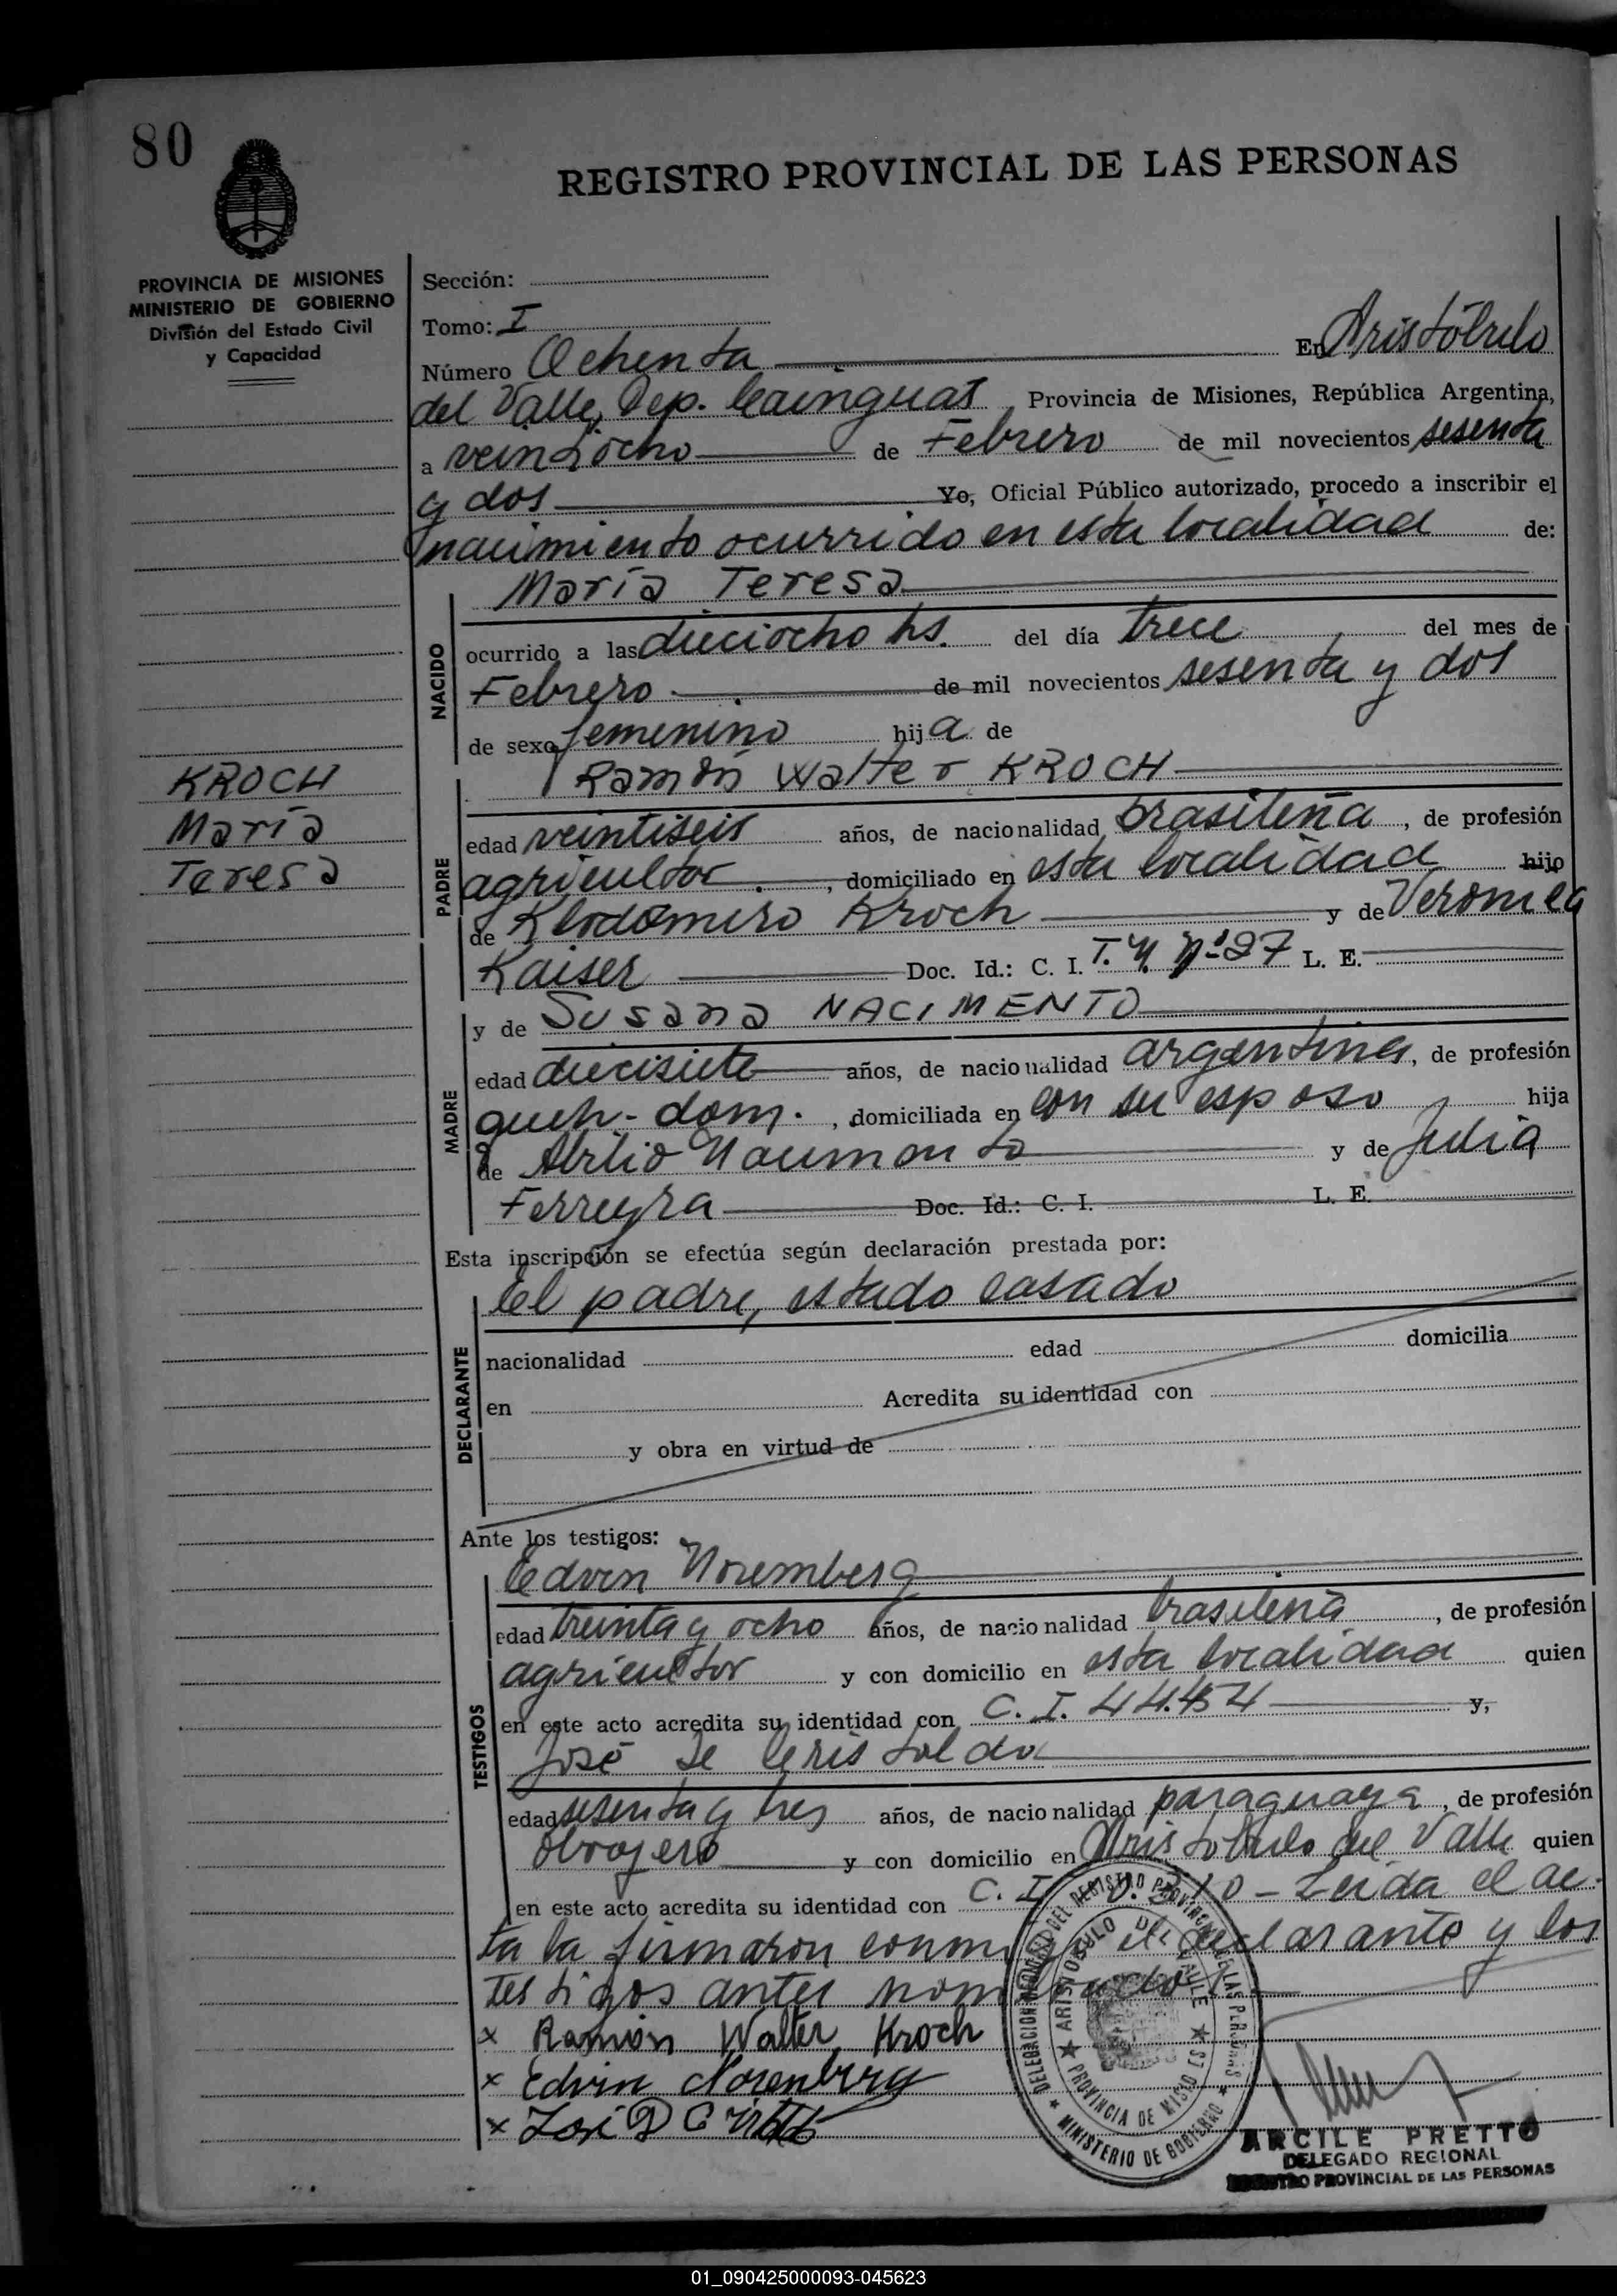 80
REGISTRO PROVINCIAL DE LAS PERSONAS
PROVINCIA DE MISIONES
MINISTERIO DE GOBIERNO
División del Estado Civil
y Capacidad
Sección:
Tomo: I
Número Ochenta En Aristóbulo
del Valle, Dep. Cainguas Provincia de Misiones, República Argentina,
a veintiocho de Febrero de mil novecientos sesenta
y dos Yo, Oficial Público autorizado, procedo a inscribir el
nacimiento ocurrido en esta localidad de:
María Teresa
NACIDO
ocurrido a las dieciocho hs. del día trece del mes de
Febrero de mil novecientos sesenta y dos
de sexo femenino hija de
KROCH
María
Teresa
PADRE
Ramón Walter KROCH
edad veintiseis años, de nacionalidad brasileña, de profesión
agricultor, domiciliado en esta localidad hijo
de Klodomiro Kroch y de Veronica
Kaiser Doc. Id.: C. I. T. Nº 27 L. E.
MADRE
y de Susana NACIMENTO
edad diecisiete años, de nacionalidad argentina, de profesión
queh. dom., domiciliada en con su esposo hija
de Abilio Nacimento y de Julia
Ferreyra Doc. Id.: C. I. L. E.
Esta inscripción se efectúa según declaración prestada por:
DECLARANTE
El padre, estado casado
nacionalidad edad domicilia
en Acredita su identidad con
y obra en virtud de
Ante los testigos:
TESTIGOS
Edvin Noremberg
edad treinta y ocho años, de nacionalidad brasileña, de profesión
agricultor y con domicilio en esta localidad quien
en este acto acredita su identidad con C. I. 44.454 y,
José de Cristaldo
edad sesenta y tres años, de nacionalidad paraguaya, de profesión
Obrajero y con domicilio en Aristóbulo del Valle quien
en este acto acredita su identidad con C. I. - Leida el ac-
ta la firmaron conmigo el declarante y los
testigos antes nombrados
x Ramón Walter Kroch
x Edvin Norenberg
x José D
DELEGACION REGIONAL DEL REGISTRO PROVINCIAL DE LAS PERSONAS
MINISTERIO DE GOBIERNO
ARISTOBULO DEL VALLE
PROVINCIA DE MISIONES
ARCILE PRETTO
DELEGADO REGIONAL
REGISTRO PROVINCIAL DE LAS PERSONAS
01_090425000093-045623